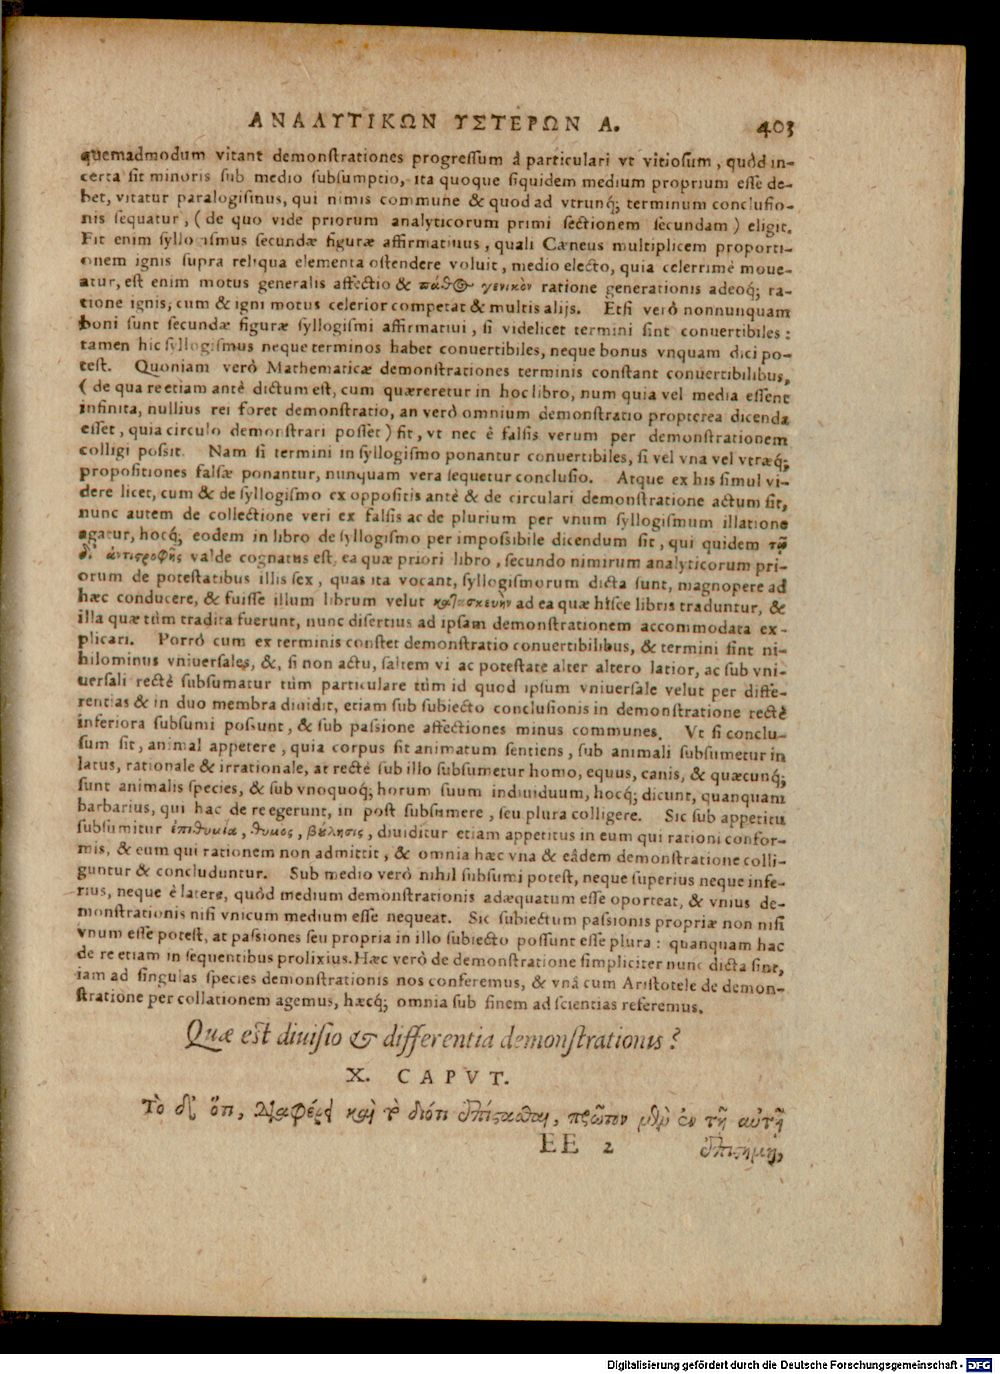 ΑΝΑΛΥΤΙΚΩΝ ΥΣΤΕΡΩΝ Α. 403
quemadmodum vitant demonſtrationes progreſſum â particulari vt vitioſum, quòd in-
certa ſit minoris ſub medio ſubſumptio, ita quoque ſiquidem medium proprium eſſe de-
bet, vitatur paralogiſmus, qui nimis commune & quod ad vtrunq; terminum concluſio-
nis ſequatur, (de quo vide priorum analyticorum primi ſectionem ſecundam) eligit.
Fit enim ſyllogiſmus ſecundæ figuræ affirmatiuus, quali Cæneus multiplicem proporti-
onem ignis ſupra reliqua elementa oſtendere voluit, medio electo, quia celerrimè moue-
atur, eſt enim motus generalis affectio & πάθος γενικὸν ratione generationis adeoq; ra-
tione ignis, cum & igni motus celerior competat & multis alijs. Etſi verò nonnunquam
boni ſunt ſecundæ figuræ ſyllogiſmi affirmatiui, ſi videlicet termini ſint conuertibiles:
tamen hic ſyllogiſmus neque terminos habet conuertibiles, neque bonus vnquam dici po-
teſt. Quoniam verò Mathematicæ demonſtrationes terminis conſtant conuertibilibus,
(de qua re etiam antè dictum eſt, cum quæreretur in hoc libro, num quia vel media eſſent
infinita, nullius rei foret demonſtratio, an verò omnium demonſtratio propterea dicenda
eſſet, quia circulo demonſtrari poſſet) fit, vt nec è falſis verum per demonſtrationem
colligi poſſit. Nam ſi termini in ſyllogiſmo ponantur conuertibiles, ſi vel vna vel vtræq;
propoſitiones falſæ ponantur, nunquam vera ſequetur concluſio. Atque ex his ſimul vi-
dere licet, cum & de ſyllogiſmo ex oppoſitis antè & de circulari demonſtratione actum ſit,
nunc autem de collectione veri ex falſis ac de plurium per vnum ſyllogiſmum illatione
agatur, hocq; eodem in libro de ſyllogiſmo per impoſsibile dicendum ſit, qui quidem τῷ
δι᾽ ἀντιστροφῆς valde cognatus eſt, ea quæ priori libro, ſecundo nimirum analyticorum pri-
orum de poteſtatibus illis ſex, quas ita vocant, ſyllogiſmorum dicta ſunt, magnopere ad
hæc conducere, & fuiſſe illum librum velut κατασκευὴν ad ea quæ hiſce libris traduntur, &
illa quæ tùm tradita fuerunt, nunc diſertius ad ipſam demonſtrationem accommodata ex-
plicari. Porrò cum ex terminis conſtet demonſtratio conuertibilibus, & termini ſint ni-
hilominus vniuerſales, &, ſi non actu, ſaltem vi ac poteſtate alter altero latior, ac ſub vni-
uerſali rectè ſubſumatur tùm particulare tùm id quod ipſum vniuerſale velut per diffe-
rentias & in duo membra diuidit, etiam ſub ſubiecto concluſionis in demonſtratione rectè
inferiora ſubſumi poſſunt, & ſub paſsione affectiones minus communes. Vt ſi conclu-
ſum ſit, animal appetere, quia corpus ſit animatum ſentiens, ſub animali ſubſumetur in
latus, rationale & irrationale, at rectè ſub illo ſubſumetur homo, equus, canis, & quæcunq;
ſunt animalis ſpecies, & ſub vnoquoq; horum ſuum indiuiduum, hocq; dicunt, quanquam
barbarius, qui hac de re egerunt, in poſt ſubſumere, ſeu plura colligere. Sic ſub appetitu
ſubſumitur ἐπιθυμία, θυμος, βούλησις, diuiditur etiam appetitus in eum qui rationi confor-
mis, & eum qui rationem non admittit, & omnia hæc vna & eâdem demonſtratione colli-
guntur & concluduntur. Sub medio verò nihil ſubſumi poteſt, neque ſuperius neque infe-
rius, neque è latere, quòd medium demonſtrationis adæquatum eſſe oporteat, & vnius de-
monſtrationis niſi vnicum medium eſſe nequeat. Sic ſubiectum paſsionis propriæ non niſi
vnum eſſe poteſt, at paſsiones ſeu propria in illo ſubiecto poſſunt eſſe plura: quanquam hac
de re etiam in ſequentibus prolixius. Hæc verò de demonſtratione ſimpliciter nunc dicta ſint,
iam ad ſingulas ſpecies demonſtrationis nos conferemus, & vnâ cum Ariſtotele de demon-
ſtratione per collationem agemus, hæcq; omnia ſub finem ad ſcientias referemus.
Quæ eſt diuiſio & differentia demonſtrationis?
X. CAPVT.
Τὸ δ᾽ ὅτι, διαφέρει καὶ τὸ διότι ἐπίστασθαι, πρῶτον μὲν ἐν τῇ αὐτῇ
EE 2 ἐπιστήμῃ,
Digitalisierung gefördert durch die Deutsche Forschungsgemeinschaft - DFG